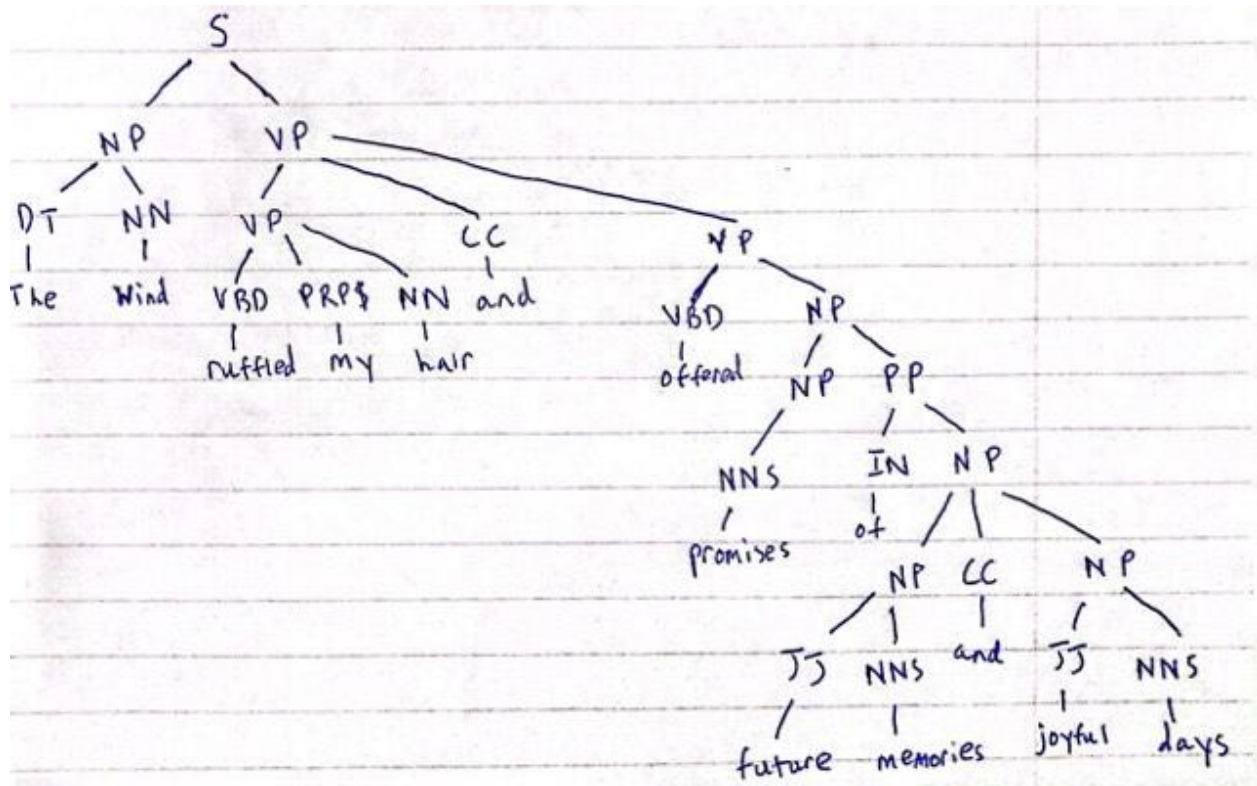 S
NP VP
DT NN VP CC VP
The Wind VBD PRP$ NN and VBD NP
ruffled my hair offered NP PP
NNS IN NP
promises of NP CC NP
JJ NNS and JJ NNS
future memories joyful days